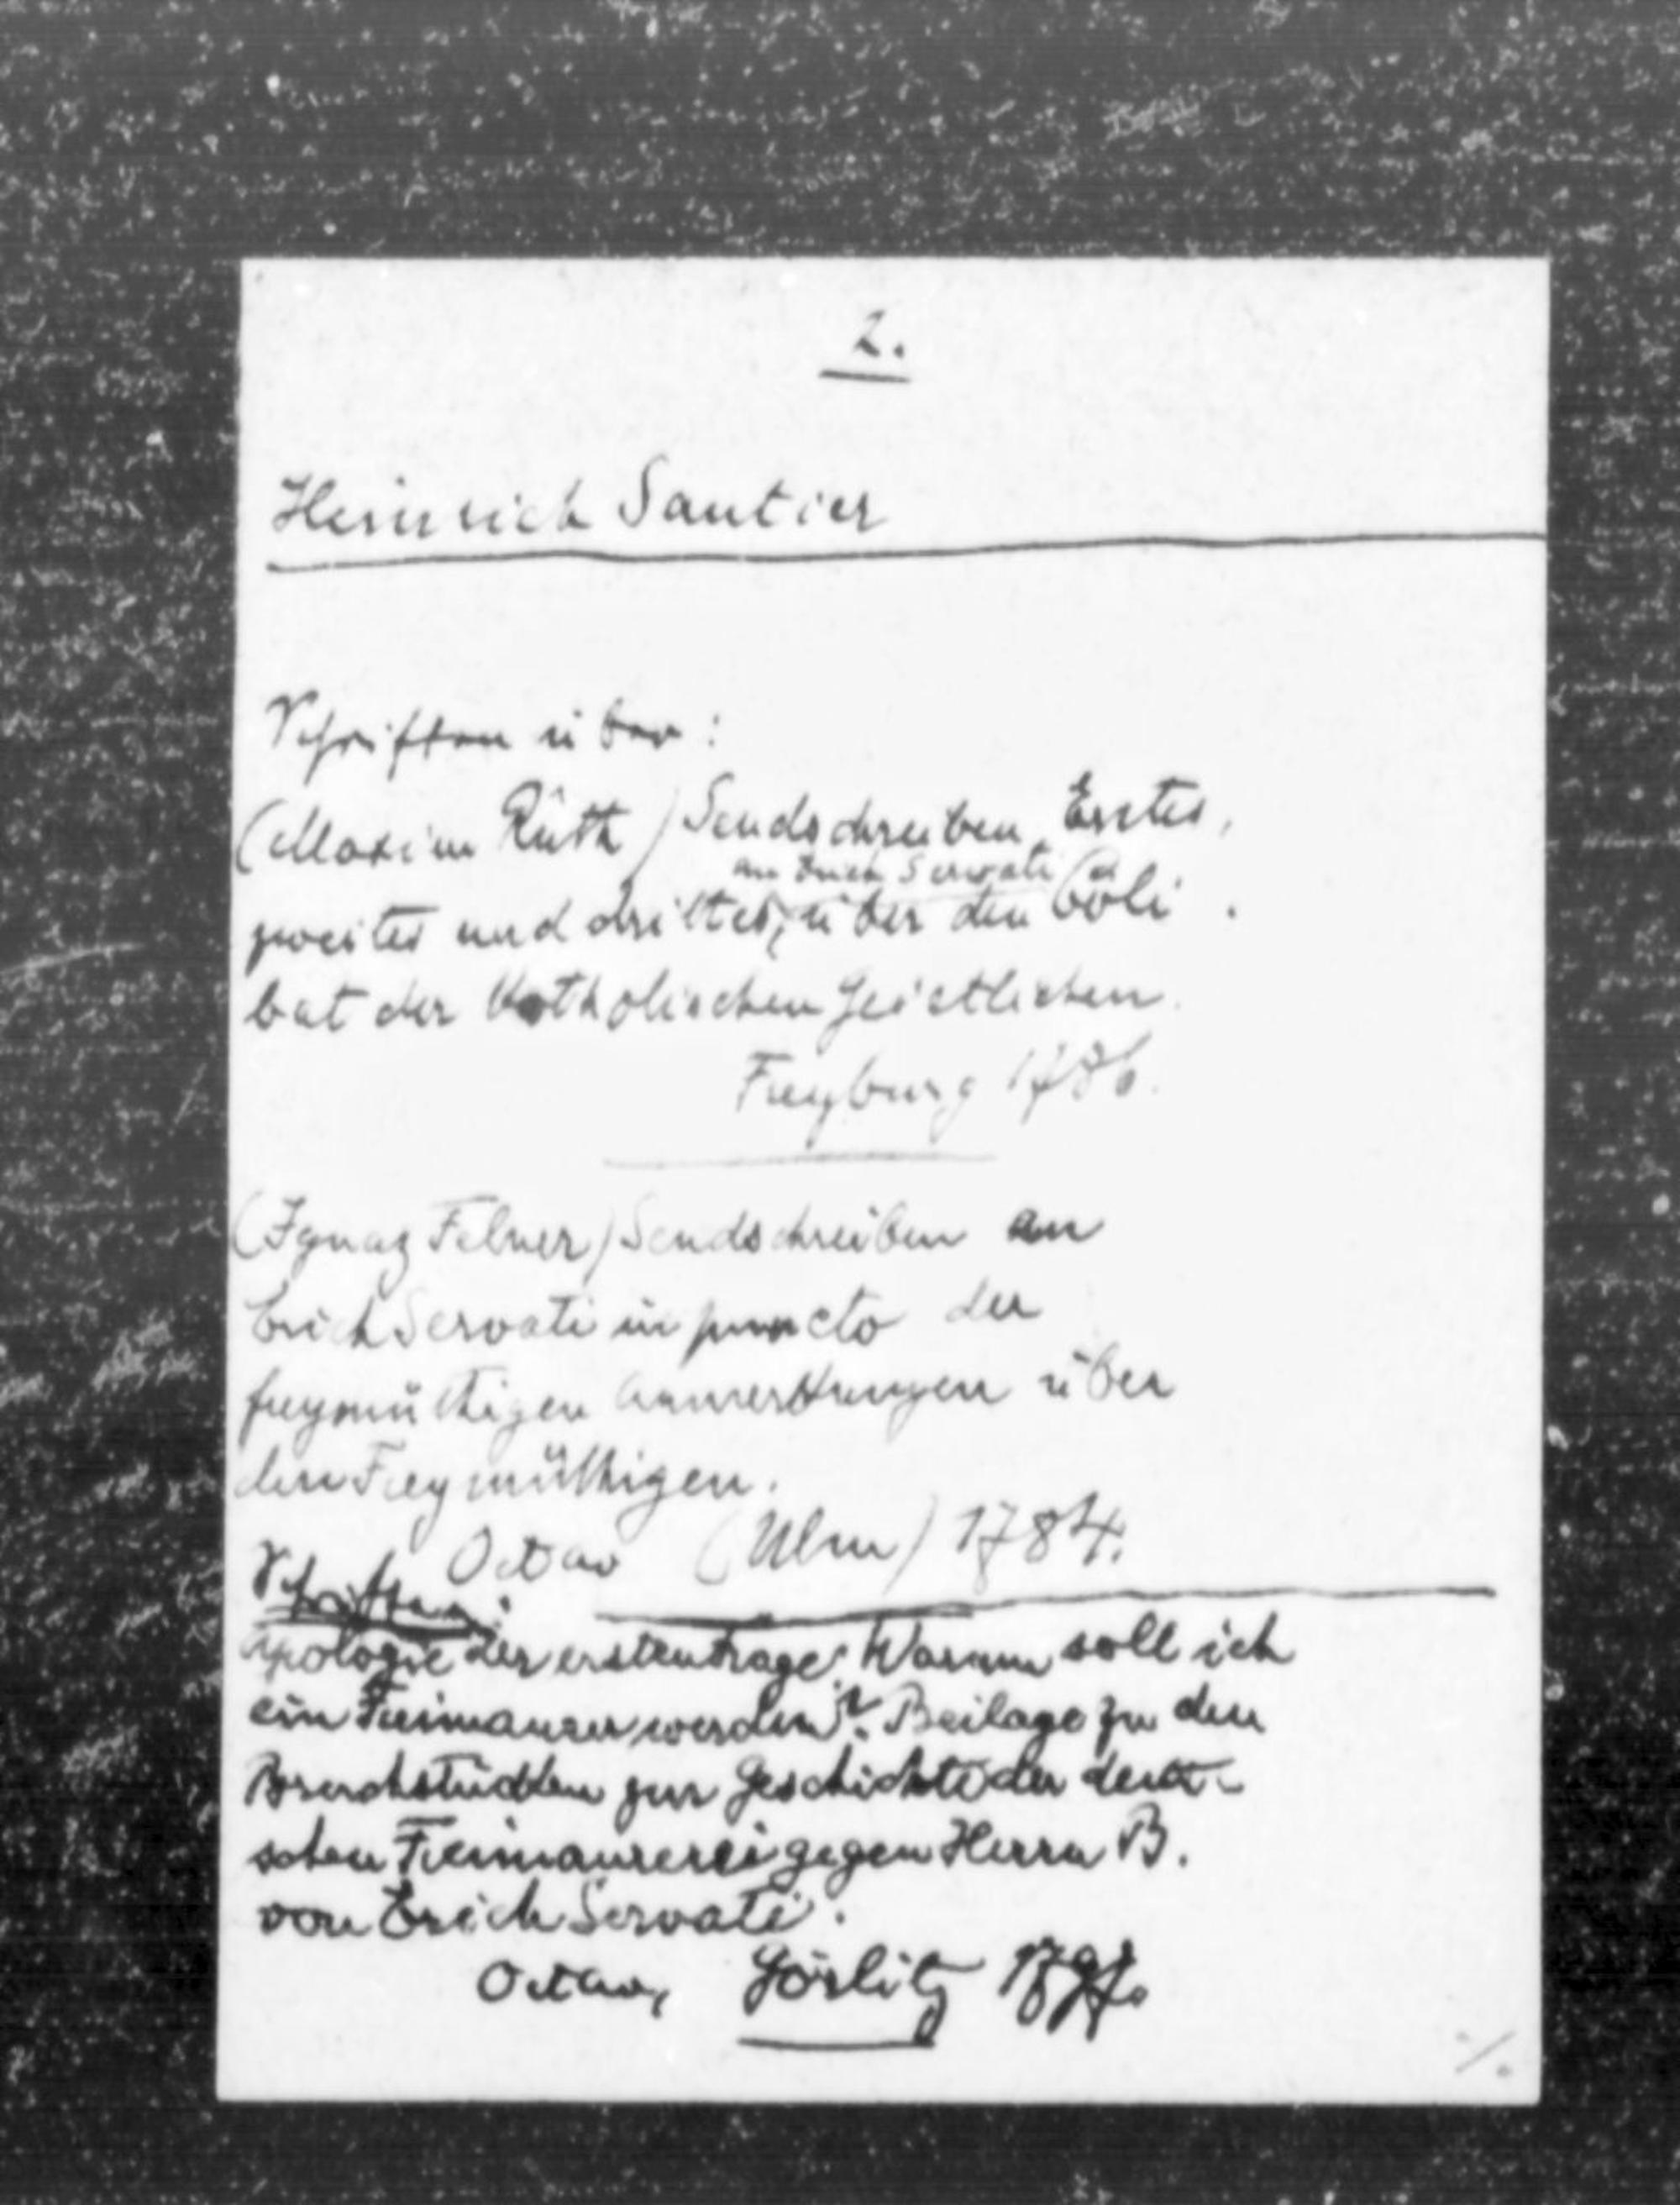 2.
Heinrich Sautier
Schriften über:
(Maxim Rüth) Sendschreiben, Erstes,
an Erich Servati
zweites und drittes, über den Cöli
bat der Katholischen Geistlichen.
Freyburg 1786.
(Ignaz Felner) Sendschreiben an
Erich Servati in puncto der
freymüthigen Anmerkungen über
den Freymüthigen.
Octav (Ulm) 1784.
Schriften:
Apologie der ersten Frage: Warum soll ich
ein Freimaurer werden? Beilage zu den
Bruchstücken zur Geschichte der deut-
schen Freimaurerei gegen Herrn B.
von Erich Servati.
Octav, Görlitz
./.